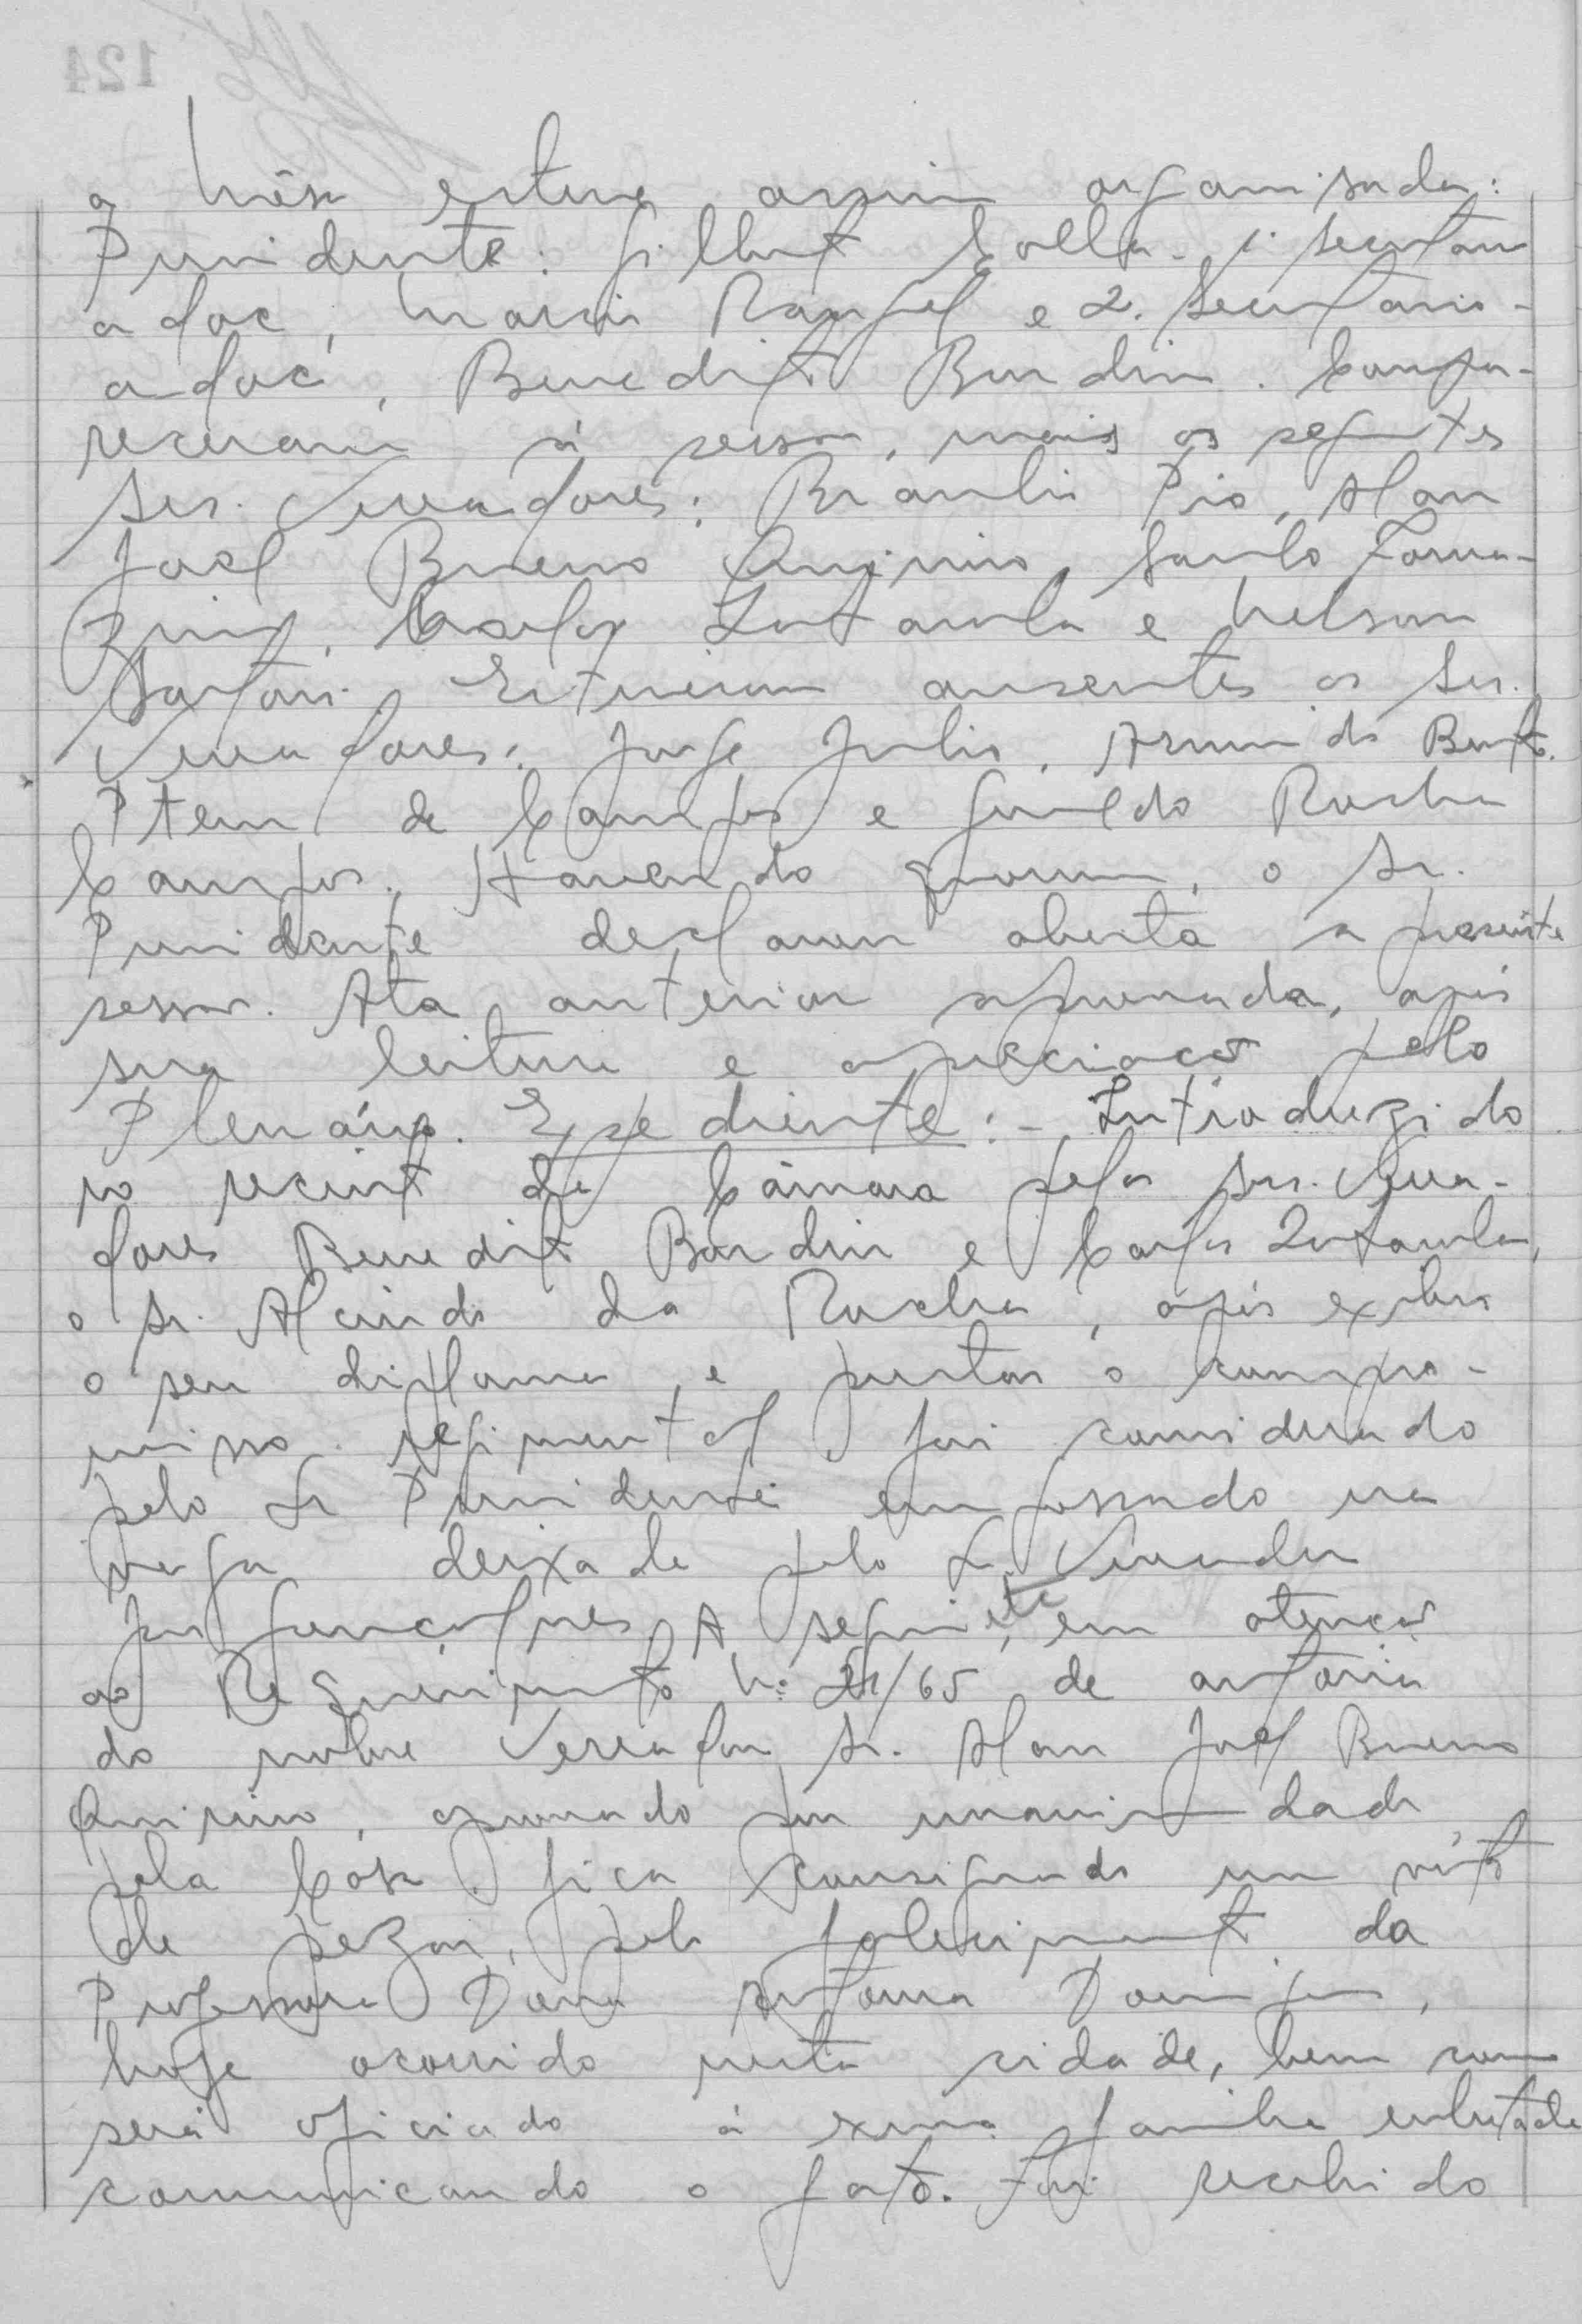 a Mêsa esteve assim organisada:
Presidente: Gilberto Colla. 1º Secretario
adoc, Mario Rangel e 2º Secretario
adoc, Benedito Bordin. Compa-
receram á sessão, mais os seguintes
Srs. Vereadores: Braulio Pio, Alan
Joel Bueno Quirino, Saulo Forna-
zin, Carlos Zutaula e Nelson
Sartori. Estiveram ausentes os Srs.
Vereadores: Jorge Julio, Armindo Bento.
de Campos e Geraldo Rocha
Campos. Havendo quorum, o Sr.
Presidente declarou aberta a presente
sessão. Ata anterior aprovada, após
sua leitura e apreciação pelo
Plenário. Expediente: - Introduzido
no recinto da Câmara pelos Srs. Verea-
dores Benedito Bordin e Carlos Zutaula,
o Sr. Alcindo da Rocha, após exibir
o seu diploma e prestar o compro-
misso regimental, foi considerado
pelo Sr Presidente empossado na
vaga deixada pelo Sr. Vereador
José Gonçalves. A seguir, em atenção
ao Requerimento Nº 21/65 de autoria
do nobre Vereador Sr. Alan Joel Bueno
Quirino, aprovado por unanimidade
pela Casa, fica consignado um voto
de pezar, pelo falecimento da
Professora Dona Antonia
hoje ocorrido nesta cidade, bem como
será oficiado á exma. familia enlutada
comunicando o fato. Foi recebido
124